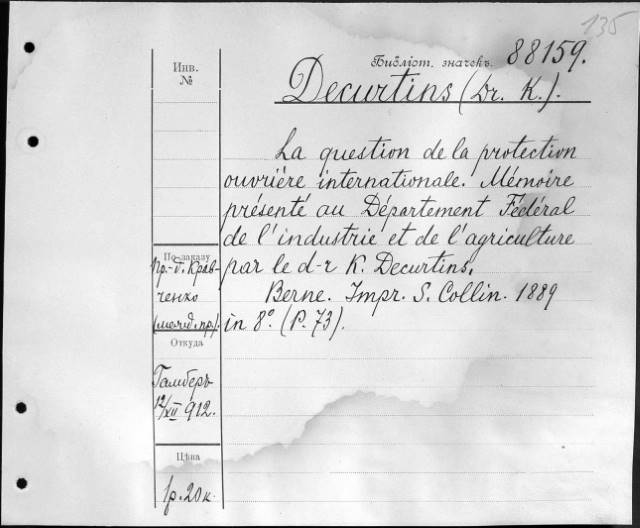 135
Библіот. значекъ 88159.
Инв.
№
Decurtins (Dr. K.).
La question de la protection
ouvrière internationale. Mémoire
présenté au Département Fédéral
de l'industrie et de l'agriculture
par le d-r K. Decurtins.
Berne. Impr. S. Collin. 1889
in 8º. (P. 73).
По заказу
Пр.-д. Крав-
ченко
Откуда
Гамберъ
12/XII 912.
Цѣна
1р. 20к.